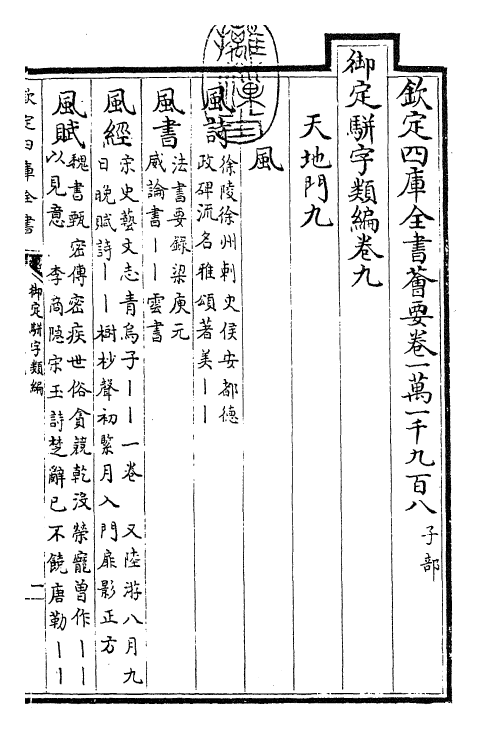 欽定四庫全書薈要卷一萬一千九百八 子部
御定駢字類編卷九
天地門九
風
風詩 徐陵徐州刺史侯安都德
政碑流名雅頌著美丨丨
風書 法書要錄梁庾元
威論書丨丨雲書
風經 宋史藝文志青烏子丨丨一卷 又陸游八月九
日晚賦詩丨丨樹杪聲初緊月入門扉影正方
風賦 魏書甄密傳密疾世俗貪競乾沒榮寵曾作丨丨
以見意 李商隱宋玉詩楚辭已不饒唐勒丨丨
欽定四庫全書
御定駢字類編